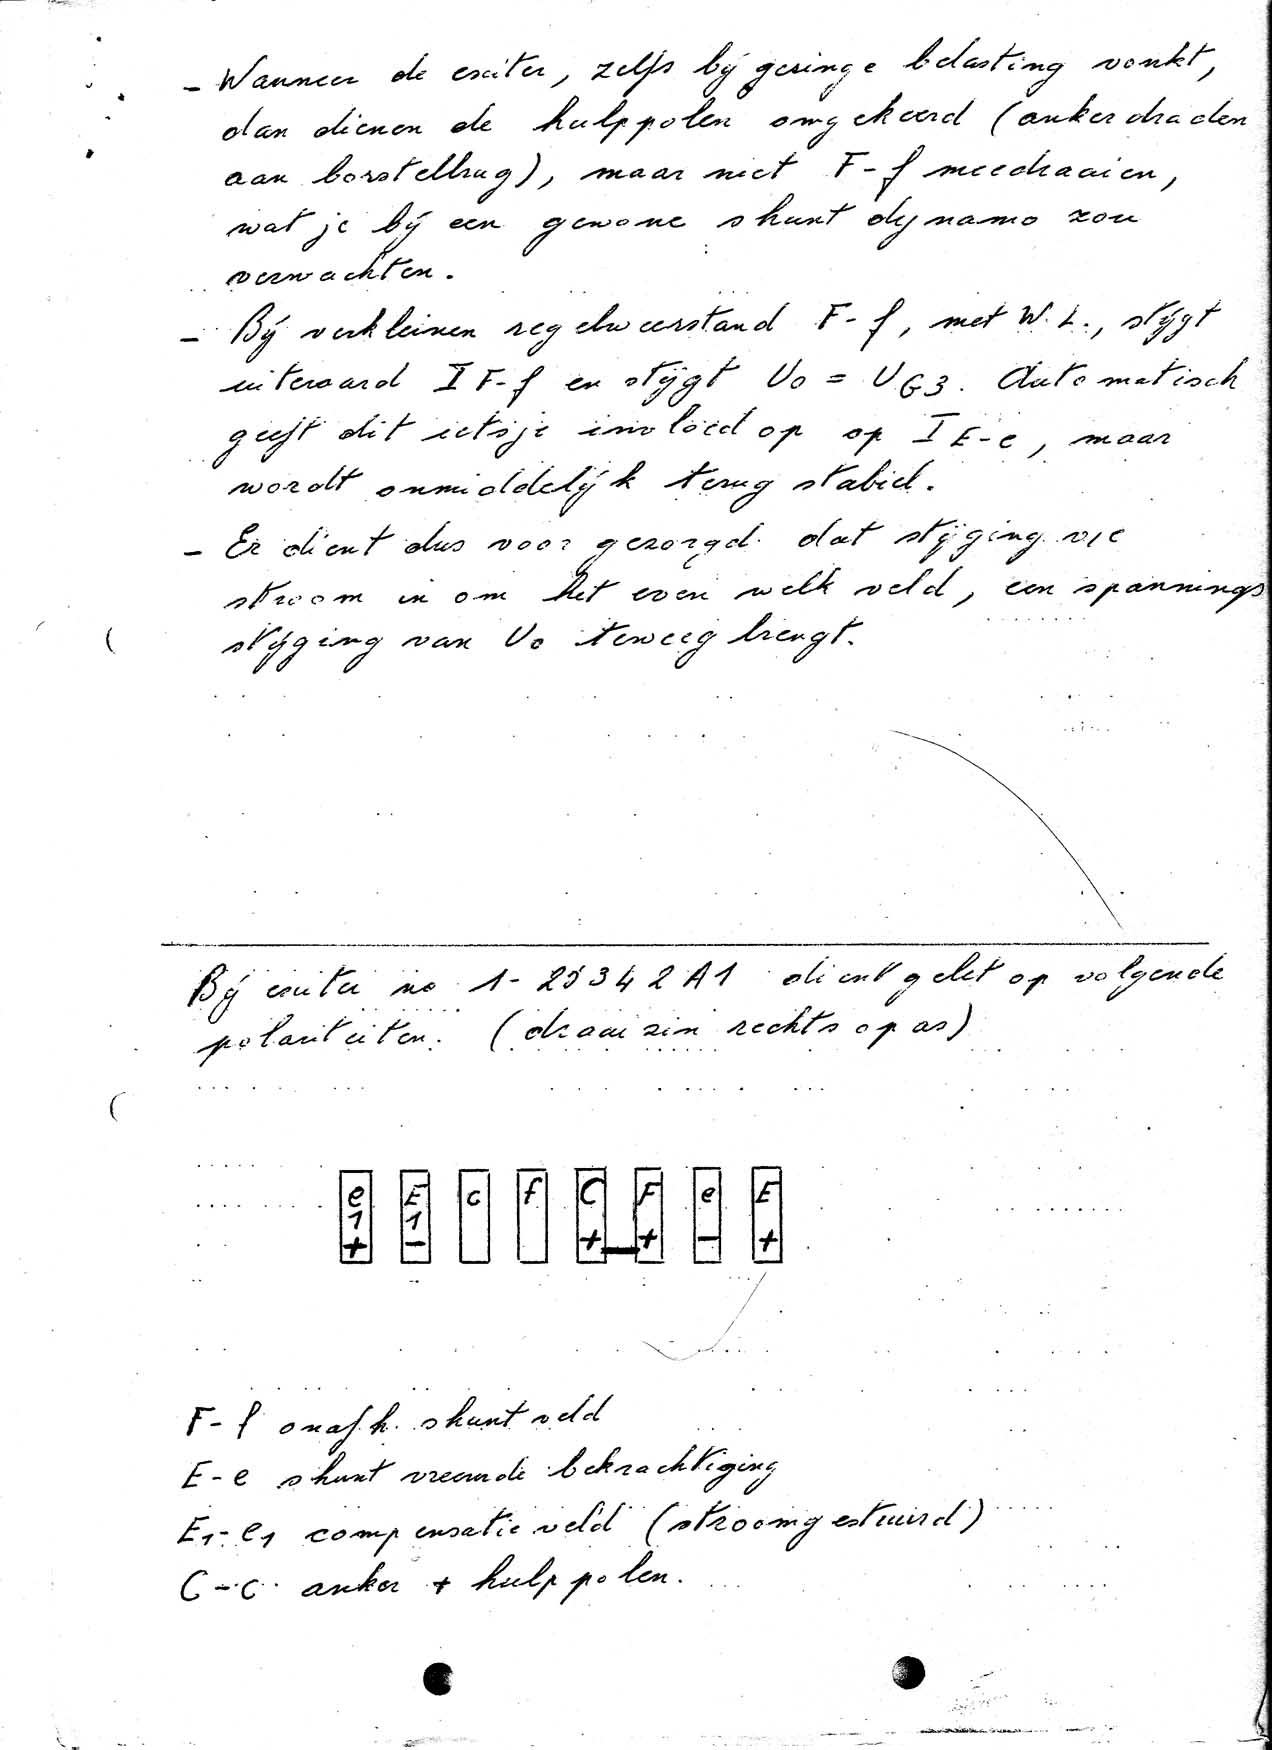 - Wanneer de exciter, zelfs bij geringe belasting vonkt,
dan dienen de hulppolen omgekeerd (ankerdraden
aan borstelbrug), maar niet F-f meedraaien,
wat je bij een gewone shunt dynamo zou
verwachten.
- Bij verkleinen regelweerstand F-f, met W.L., stijgt
uiteraard I F-f en stijgt Uo = UG3. Automatisch
geeft dit ietsje invloed op op I E-e, maar
wordt onmiddelijk terug stabiel.
- Er dient dus voor gezorgd dat stijging v/e
stroom in om het even welk veld, een spannings
stijging van Uo teweeg brengt.
Bij exciter no 1-25342A1 dient gelet op volgende
polariteiten. (draaizin rechts op as)
e1+ E1- c f C+ F+ e- E+
F-f onafh. shunt veld
E-e shunt vreemde bekrachtiging
E1-e1 compensatie veld (stroomgestuurd)
C-c anker + hulppolen.